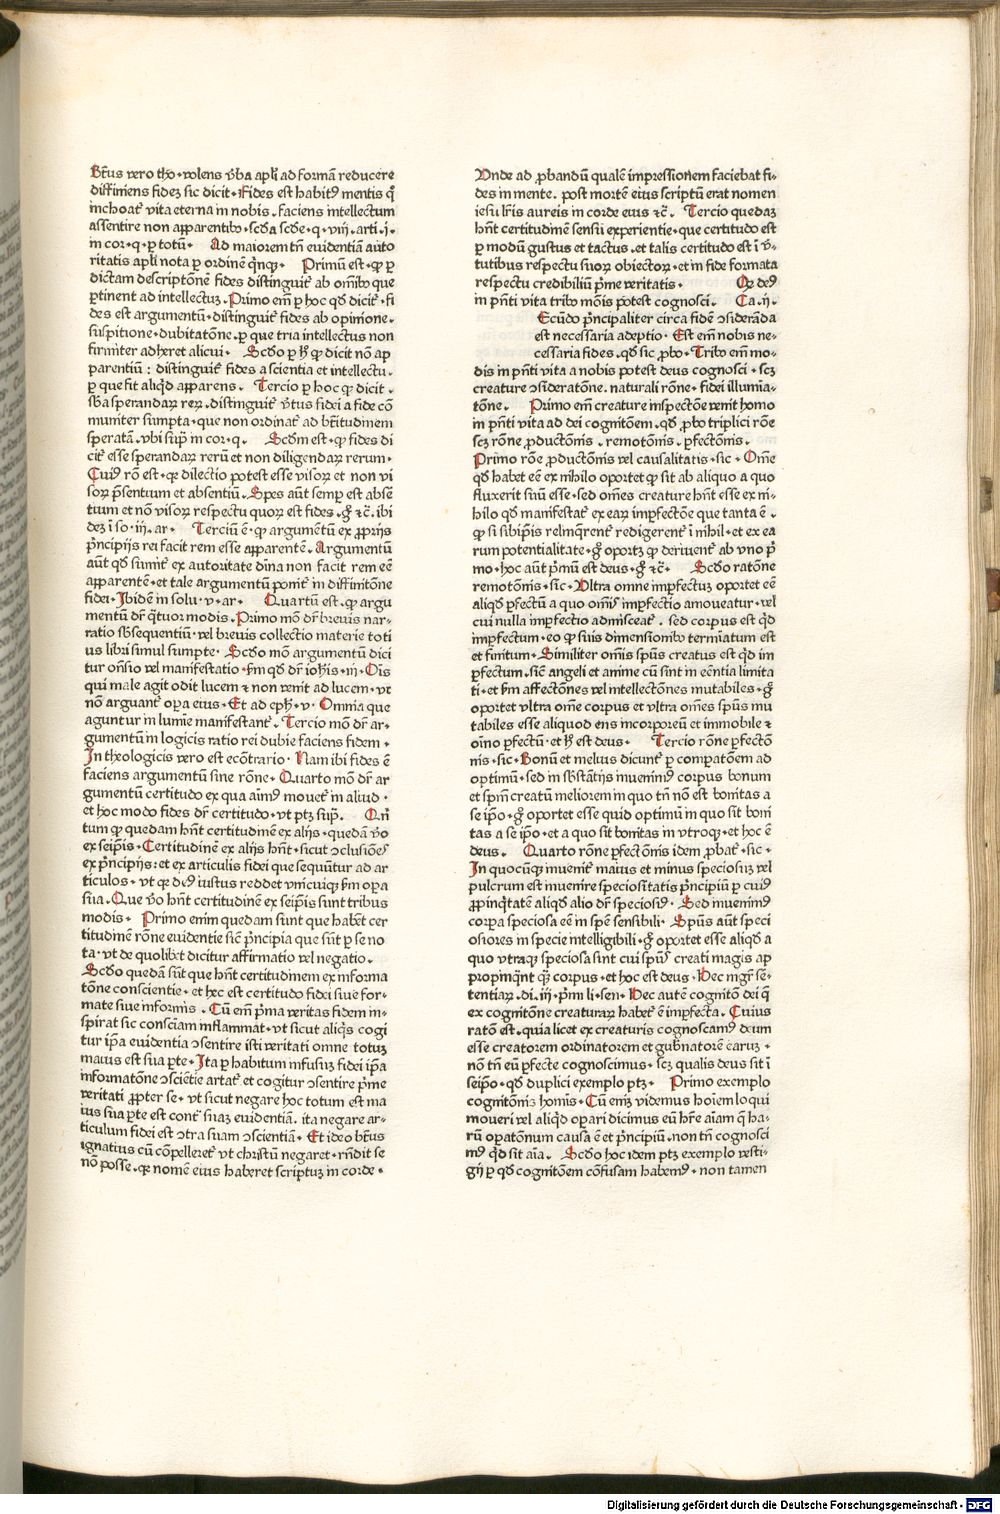 Btūs vero tho· volens v̄ba apl̄i ad formā reducere
diffiniens fidez sic dicit· Fides est habitꝰ mentis q̄
inchoat᷑ vita eterna in nobis· faciens intellectum
assentire non apparentibꝰ· scd̄a scd̄e· q· viij· arti· j·
in cor· q· ꝑ totū· Ad maiorem tn̄ euidentiā auto
ritatis apl̄i nota ꝑ ordinē qn̄qꝫ· Primū est· ꝙ ꝑ
dictam descriptōnē fides distinguit᷑ ab om̄ibꝰ que
ꝑtinent ad intellectuꝫ· Primo em̄ ꝑ hoc qd̄ dicit᷑· fi
des est argumentū· distinguit᷑ fides ab opinione·
suspitione· dubitatōne· ꝑ que tria intellectus non
firmiter adheret alicui· Scd̄o ꝑ h̄ ꝙ dicit nō ap
parentiū : distinguit᷑ fides a scientia et intellectu·
ꝑ que fit aliqd̄ apparens· Tercio ꝑ hoc ꝙ dicit·
sb̄a sperandaꝝ reꝝ· distinguit᷑ v̄tus fidei a fide cō
muniter sumpta· que non ordinat᷑ ad bt̄itudinem
speratā· vbi sup̄ in cor· q· Scd̄m est· ꝙ fides di
cit᷑ esse sperandaꝝ rerū et non diligendaꝝ rerum·
Cuiꝰ rō est· ꝙ dilectio potest esse visoꝝ et non vi
soꝝ p̄sentium et absentiū· Spes aūt semꝑ est absē
tium et nō visoꝝ respectu quoꝝ est fides· g̊ ⁊c̄· ibi
dez ī so· iij· ar· Terciū ē· ꝙ argumētū ex ꝓprijs
p̄ncipijs rei facit rem esse apparentē· Argumentū
aūt qd̄ sumit᷑ ex autoritate diuina non facit rem eē
apparentē· et tale argumentū ponit᷑ in diffinitōne
fidei· Ibidē in solu· v· ar· Quartū est· ꝙ argu
mentū dr̄ q̈tuor modis· Primo mō dr̄ breuis nar·
ratio sb̄sequentiū· vel breuis collectio materie toti
us libri simul sumpte· Scd̄o mō argumentū dici
tur om̄sio vel manifestatio· ẜm qd̄ dr̄ ioh̄is· iij· Oīs
qui male agit odit lucem ⁊ non venit ad lucem· vt
non arguant᷑ oꝑa eius· Et ad eph̄· v· Omnia que
aguntur in lumine manifestant᷑· Tercio mō dr̄ ar·
gumentū in logicis ratio rei dubie faciens fidem·
In theologicis vero est ecōtrario· Nam ibi fides ē
faciens argumentū sine rōne· Quarto mō dr̄ ar
gumentū certitudo ex qua aīmꝰ mouet᷑ in aliud·
et hoc modo fides dr̄ certitudo· vt ptꝫ sup̄· Qn̄
tum ꝙ quedam hn̄t certitudinē ex alijs· quedā v̄o
ex seip̄is· Certitudinē ex alijs hn̄t· sicut ɔclusiōes
ex p̄ncipijs : et ex articulis fidei que sequūtur ad ar
ticulos· vt ꝙ deꝰ iustus reddet vnicuiqꝫ ẜm oꝑa
sua· Que v̄o hn̄t certitudinē ex seip̄is sunt tribus
modis· Primo enim quedam sunt que habēt cer
titudinē rōne euidentie sicut p̄ncipia que sūt ꝑ se no
ta· vt de quolibet dicitur affirmatio vel negatio·
Scd̄o quedā sūt que hn̄t certitudinem ex informa
tōne conscientie· et hec est certitudo fidei siue for·
mate siue informis· Cū em̄ p̄ma veritas fidem in·
spirat sic consciam inflammat· vt sicut aliqs̄ cogi
tur ip̄a euidentia ɔsentire isti veritati omne totuꝫ
maius est sua ꝑte· Ita ꝑ habitum infusuꝫ fidei ip̄a
informatōne ɔscientie artat᷑ et cogitur ɔsentire p̄me
veritati ꝓpter se· vt sicut negare hoc totum est ma
ius sua ꝑte est cont᷑ suaꝫ euidentiā· ita negare ar·
ticulum fidei est ɔtra suam ɔscientiā· Et ideo bt̄us
ignatius cū cōpelleret᷑ vt christū negaret· rn̄dit se
nō posse· ꝙ nomē eius haberet scriptuꝫ in corde·
Vnde ad ꝓbandū qualē impressionem faciebat fi·
des in mente· post mortē eius scriptū erat nomen
iesu lr̄is aureis in corde eius ⁊c̄· Tercio quedaꝫ
hn̄t certitudinē sensu experientie· que certitudo est
ꝑ modū gustus et tactus· et talis certitudo est ī v̄·
tutibus respectu suoꝝ obiectoꝝ· et in fide formata
respectu credibiliū p̄me veritatis· Qꝫ deꝰ
in p̄nti vita tribꝰ mōis potest cognosci· Ca· ij·
Scūdo p̄ncipaliter circa fidē ɔsiderāda
est necessaria adeptio· Est em̄ nobis ne·
cessaria fides· qd̄ sic ꝓbo· Tribꝰ em̄ mo·
dis in p̄nti vita a nobis potest deus cognosci· scꝫ
creature ɔsideratōne· naturali rōne· fidei illumina·
tōne· Primo em̄ creature inspectōne venit homo
in p̄nti vita ad dei cognitōem· qd̄ ꝓbo triplici rōne
scꝫ rōne ꝓductōnis· remotōnis· ꝑfectōnis·
Primo rōne ꝓductōnis vel causalitatis· sic· Om̄e
qd̄ habet eē ex nihilo oportet ꝙ sit ab aliquo a quo
fluxerit suū esse· sed om̄es creature hn̄t esse ex ni·
hilo qd̄ manifestat᷑ ex eaꝝ imꝑfectōne que tanta ē·
ꝙ si sibip̄is relinq̄rent᷑ redigerent᷑ ī nihil· et ex ea
rum potentialitate· g̊ oportꝫ ꝙ deriuent᷑ ab vno p̄
mo· hoc aūt p̄mū est deus· g̊ ⁊c̄· Scd̄o ratōne
remotōnis· sic· Vltra omne imꝑfectuꝫ oportet eē
aliqd̄ ꝑfectū a quo om̄is imꝑfectio amoueatur· vel
cui nulla imꝑfectio admisceat᷑· sed corpus est qd̄
imꝑfectum· eo ꝙ suis dimensionibꝰ terminatum est
et finitum· Similiter om̄is sp̄us creatus est qd̄ im
ꝑfectum· sicut angeli et anime cū sint in eēntia limita
ti· et ẜm affectōnes vel intellectōnes mutabiles· g̊
oportet vltra om̄e corpus et vltra om̄es sp̄us mu
tabiles esse aliquod ens incorporeū et immobile ⁊
oīno ꝑfectū· et h̄ est deus· Tercio rōne ꝑfectō
nis· sic· Bonū et melius dicunt᷑ ꝑ compatōem ad
optimū· sed in sb̄stātijs inuenimꝰ corpus bonum
et sp̄m creatū meliorem in quo tn̄ nō est bonitas a
se ip̄o· g̊ oportet esse quid optimū in quo sit boni
tas a se ip̄o· et a quo sit bonitas in vtroqꝫ· et hoc ē
deus· Quarto rōne ꝑfectōnis idem ꝓbat᷑· sic·
In quocūqꝫ inuenit᷑ maius et minus speciosuꝫ vel
pulcrum est inuenire speciositatis p̄ncipiū ꝑ cuiꝰ
ꝓpinq̄tatē aliqd̄ alio dr̄ speciosiꝰ· Sed inuenimꝰ
corꝑa speciosa eē in spē sensibili· Sp̄us aūt speci
osiores in specie intelligibili· g̊ oportet esse aliqd̄ a
quo vtraqꝫ speciosa sint cui sp̄us creati magis ap
propinqn̄t qꝫ corpus· et hoc est deus· Hec mgr̄ sē·
tentiaꝝ· di· iij· p̄mi li· sen· Hec autē cognitō dei q̄
ex cognitōne creaturaꝝ habet᷑ ē imꝑfecta· Cuius
ratō est· quia licet ex creaturis cognoscamꝰ deum
esse creatorem ordinatorem et gub̄natorē earuꝫ·
non tn̄ eū ꝑfecte cognoscimus· scꝫ qualis deus sit ī
seip̄o· qd̄ duplici exemplo ptꝫ· Primo exemplo
cognitōnis homīs· Cū emꝫ videmus hoīem loqui
moueri vel aliqd̄ oꝑari dicimus eū hr̄e aīam q̄ ha·
rū oꝑatōnum causa ē et p̄ncipiū· non tn̄ cognosci
mꝰ qd̄ sit aīa· Scd̄o hoc idem ptꝫ exemplo vesti·
gij ꝑ qd̄ cognitōem cōfusam habemꝰ· non tamen
Digitalisierung gefördert durch die Deutsche Forschungsgemeinschaft - DFG